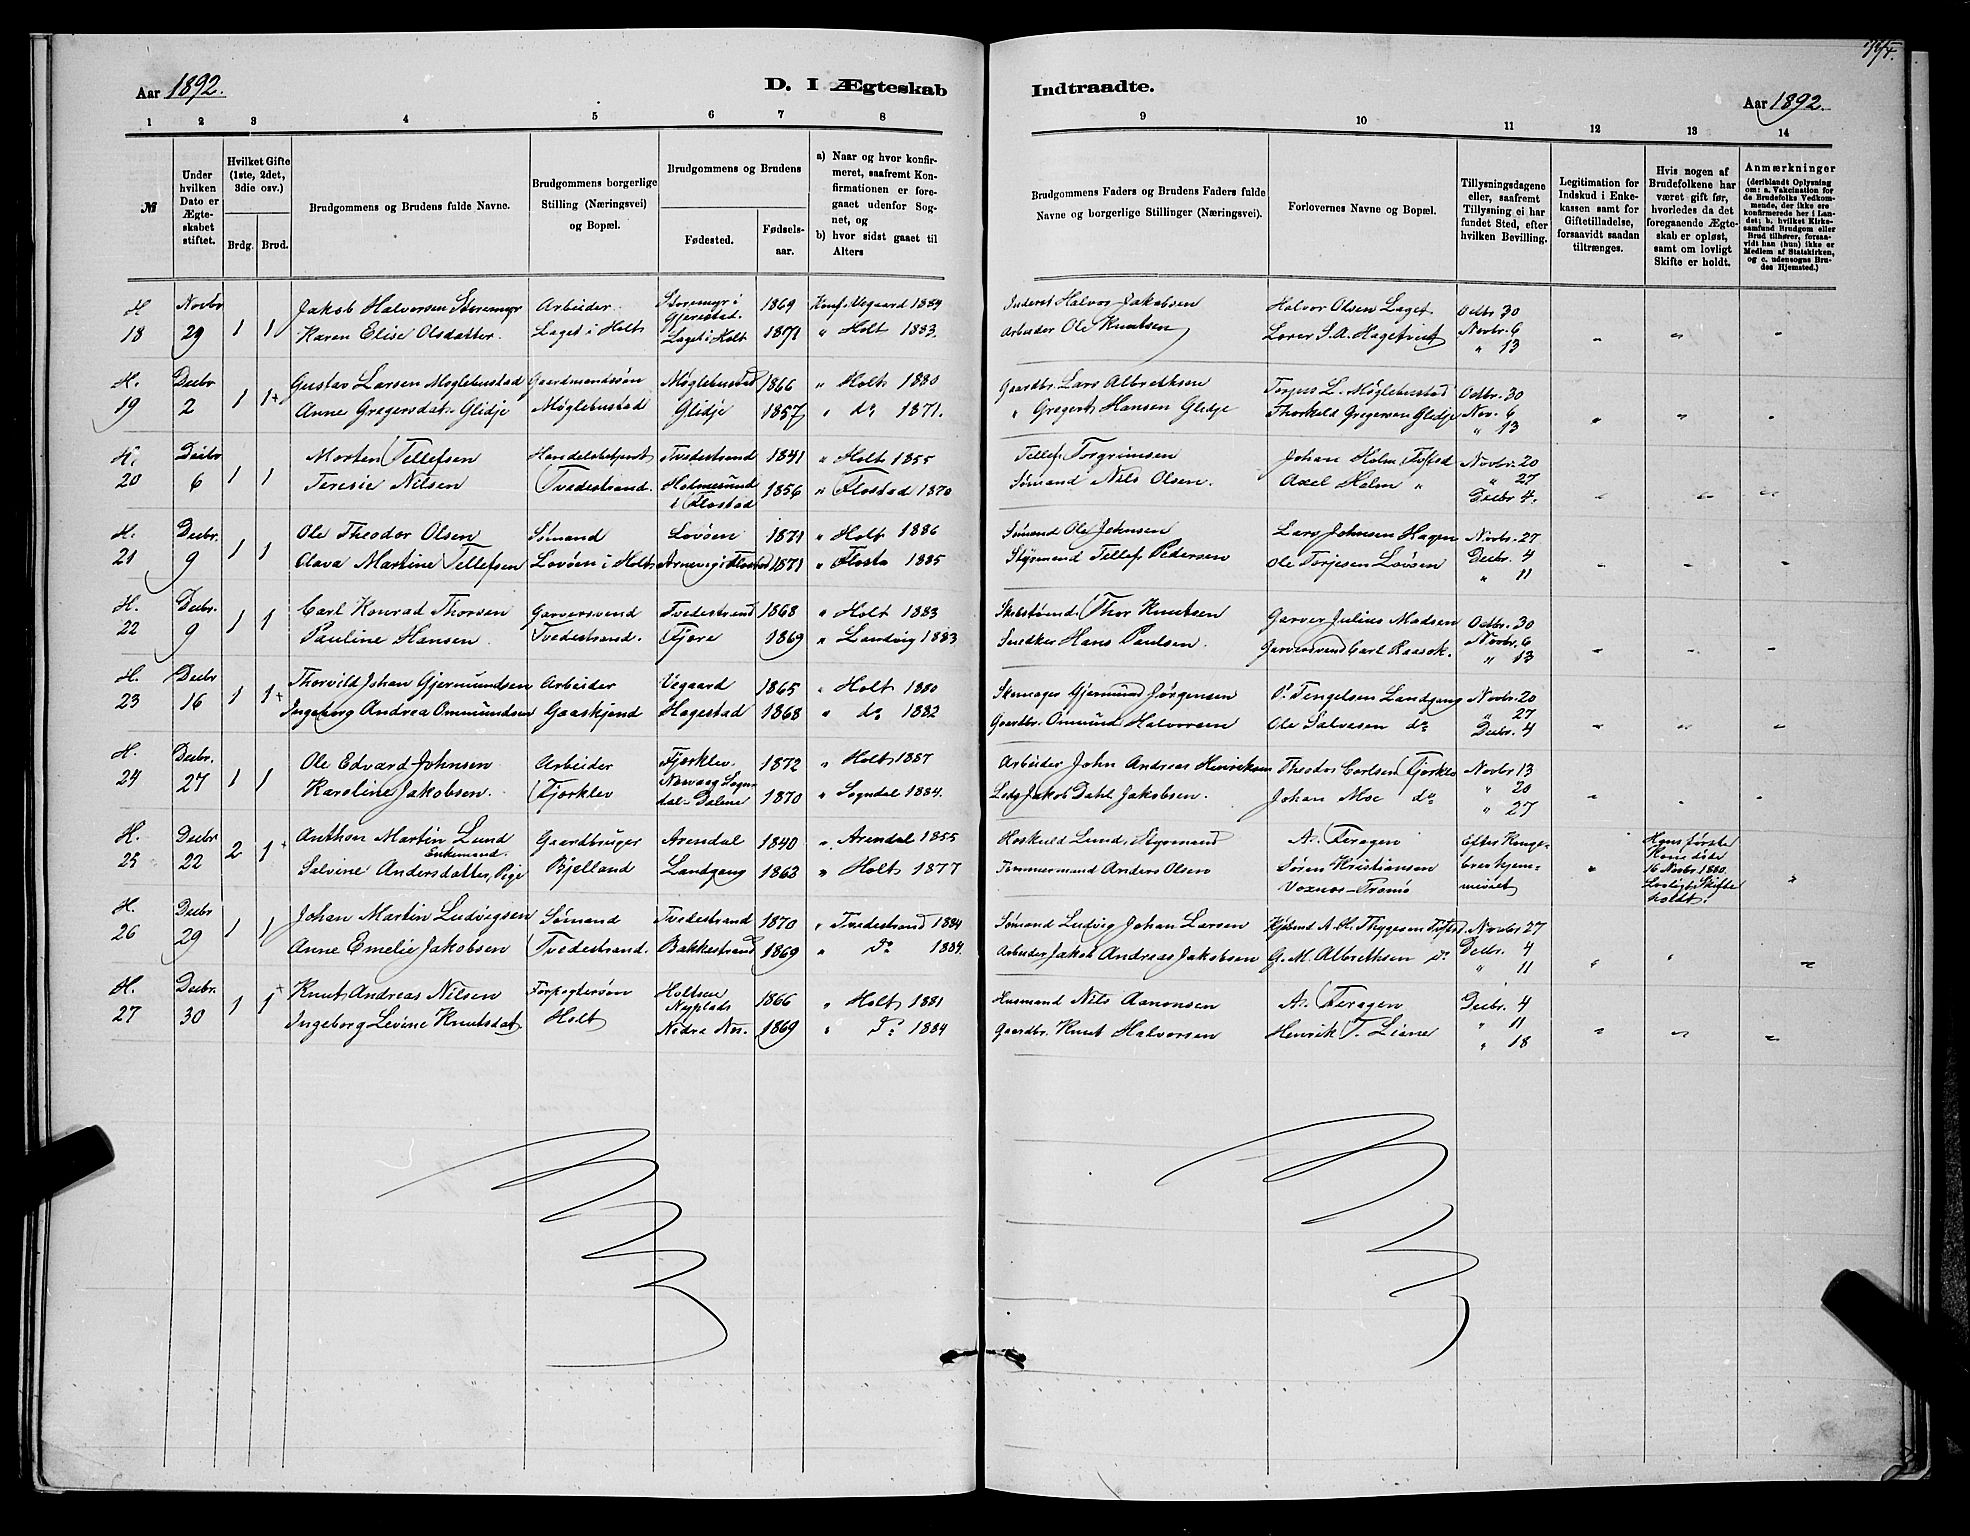 Aar 1892.
D. I Ægteskab
Indtraadte.
Aar 1892.
1 2 3 4 5 6 7 8
9 10 11 12 13 14
№
Under hvilken Dato er Ægteskabet stiftet.
Hvilket Gifte (1ste, 2det, 3die osv.)
Brdg. Brud.
Brudgommens og Brudens fulde Navne.
Brudgommens borgerlige Stilling (Næringsvei) og Bopæl.
Brudgommens og Brudens
Fødested.
Fødselsaar.
a) Naar og hvor konfirmeret, saafremt Konfirmationen er foregaaet udenfor Sognet, og
b) hvor sidst gaaet til Alters
Brudgommens Faders og Brudens Faders fulde Navne og borgerlige Stillinger (Næringsvei).
Forlovernes Navne og Bopæl.
Tillysningsdagene eller, saafremt Tillysning ei har fundet Sted, efter hvilken Bevilling.
Legitimation for Indskud i Enkekassen samt for Giftetilladelse, forsaavidt saadan tiltrænges.
Hvis nogen af Brudefolkene har været gift før, hvorledes da det foregaaende Ægteskab er opløst, samt om lovligt Skifte er holdt.
Anmærkninger
(deriblandt Oplysning om: a. Vakcination for de Brudefolks Vedkommende, der ikke ere konfirmerede her i Landet; b. hvilket Kirkesamfund Brudgom eller Brud tilhører, forsaavidt han (hun) ikke er Medlem af Statskirken, og c. udensogns Brudes Hjemsted.)
H. Novbr Jakob Halvorsen Storemyr Arbeider Storemyr i Gjerestad 1869 Konf. Vegaard 1884 Inderst Halvor Jakobsen Halvor Olsen Laget Octbr 30
18 29 1 1 Karen Elise Olsdatter. Laget i Holt Laget i Holt 1871 " Holt 1883. Arbeider Ole Knutsen Lærer S. A. Hagetveit Novbr. 6
" 13
H. Decbr Gustav Larsen Møglebustad Gaardmandssøn Møglebustad 1866 " Holt 1880 Gaardbr. Lars Albrethsen Torjus L. Møglebustad Octbr. 30
19 2 1 1+ Anne Gregersdat. Glidje Møglebustad Glidje 1857 " do 1871. " Gregert Hansen Glidje Thorkeld Gregersen Glidje Nov. 6
" 13
H. Decbr Morten Tellefsen Handelsbetjent Tvedestrand 1841 " Holt 1855 Tellef Torgrimsen Johan Holm, Tvedstd Novbr. 20
20 6 1 1 Teresie Nilsen Tvedestrand. Holmesund i Flostad 1856 " Flostad 1870 Sømand Nils Olsen. Axel Holm " " 27
Decbr 4.
H. Decbr. Ole Theodor Olsen Sømand Lovøen 1871 " Holt 1886 Sømand Ole Johnsen Lars Johnsen Hagen Novbr. 27
21 9 1 1 Olava Martine Tellefsen Lovøen i Holt Arnevig i Flostad 1871 " Flosta 1885 Styrmand Tellef Pedersen Ole Torjesen Lovøen Decbr. 4
" 11
H. Decbr. Carl Konrad Thorsen Garversvend Tvedestrand 1868 " Holt 1883 Skibstømd. Thor Knutsen Garver Julius Madsen Octbr. 30
22 9 1 1 Pauline Hansen Tvedestrand. Fjære 1869 " Landvig 1883 Snedker Hans Paulsen. Garversvend Carl Raasok. Novbr. 6
" 13
H. Decbr Thorvild Johan Gjermundsen Arbeider Vegaard 1865 " Holt 1880 Skomager Gjermund Jørgensen P. Tengelsen Landgang Novbr. 20
23 16 1 1+ Ingeborg Andrea Ommundsen Gaaskjend Hagestad 1868 " do 1882 Gaardbr. Omund Halvorsen Ole Salvesen do " 27
Decbr. 4
H. Decbr. Ole Edvard Johnsen Arbeider Fjærklev 1872 " Holt 1887 Arbeider John Andreas Henriksen Theodor Carlsen Fjorklev Novbr 13
24 27 1 1 Karoline Jakobsen. Fjorklev Sogndal Dalene 1870 " Sogndal 1884. Jakob Dahl Jakobsen. Johan Moe do " 20
" 27
H. Decbr Anthon Martin Lund Enkemand. Gaardbruger Arendal 1840 " Arendal 1855 Hoskuld Lund, Styrmand A. Feragen Efter Kongebrev
25 22 2 1+ Salvine Andersdatter, Pige Bjelland Landgang 1863 " Holt 1877 Tømmermand Anders Olsen Søren Kristiansen Voxnes-Tromø Hans første Kone døde 16 Novbr. 1880. Lovligt Skifte holdt.
H. Decbr Johan Martin Ludvigsen Sømand Tvedestrand 1870 " Tvedestrand 1884 Sømand Ludvig Johan Larsen Kjøbmd A. H. Thygesen Novbr 27
26 29 1 1 Anne Emelie Jakobsen Tvedestrand. Bakkestrand 1869 " do 1884. Arbeider Jakob Andreas Jakobsen G. M. Albrethsen do Decbr. 4
" 11
H. Decbr. Knut Andreas Nilsen Forpagtersøn Holtsen Nyplads 1866 " Holt 1881 Husmand Nils Aanonsen A. Feragen Decbr. 4
27 30 1 1+ Ingeborg Levine Knutsdat Holt Nedre Nes. 1869 " do 1884 Gaardbr. Knut Halvorsen Henrik T. Liane " 11
" 18